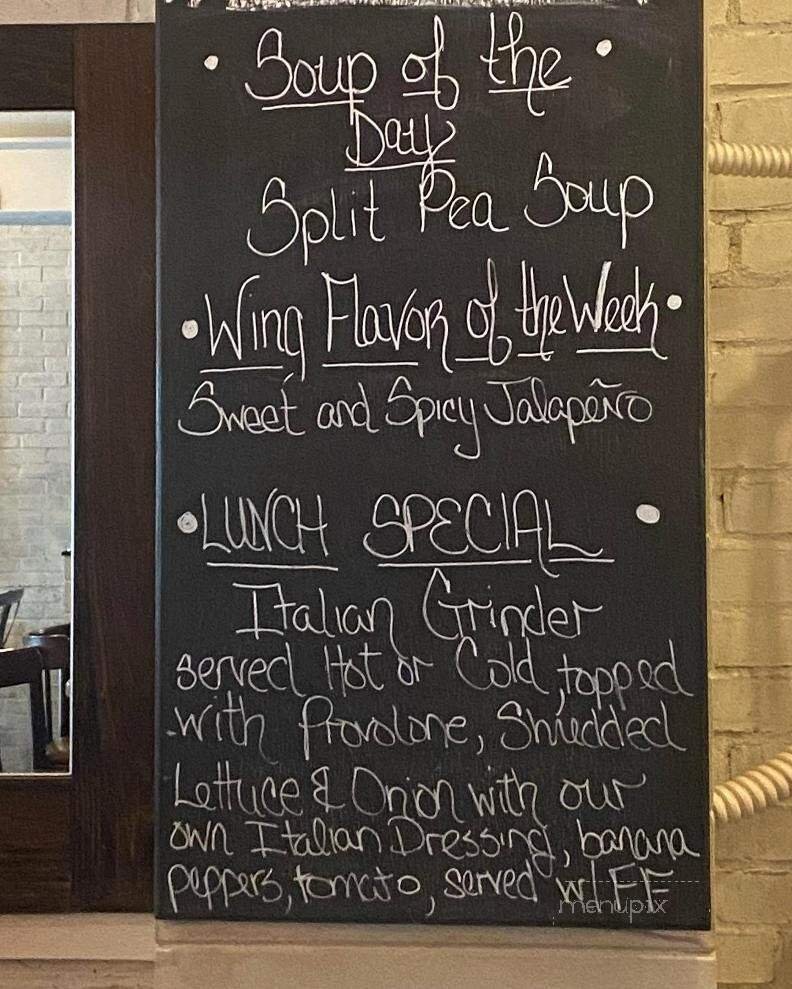 • Soup of the •
Day
Split Pea Soup
• Wing Flavor of the Week •
Sweet and Spicy Jalapeño
• LUNCH SPECIAL •
Italian Grinder
served Hot or Cold, topped
with Provolone, Shredded
Lettuce & Onion with our
own Italian Dressing, banana
peppers, tomato, served w/ FF
menupix